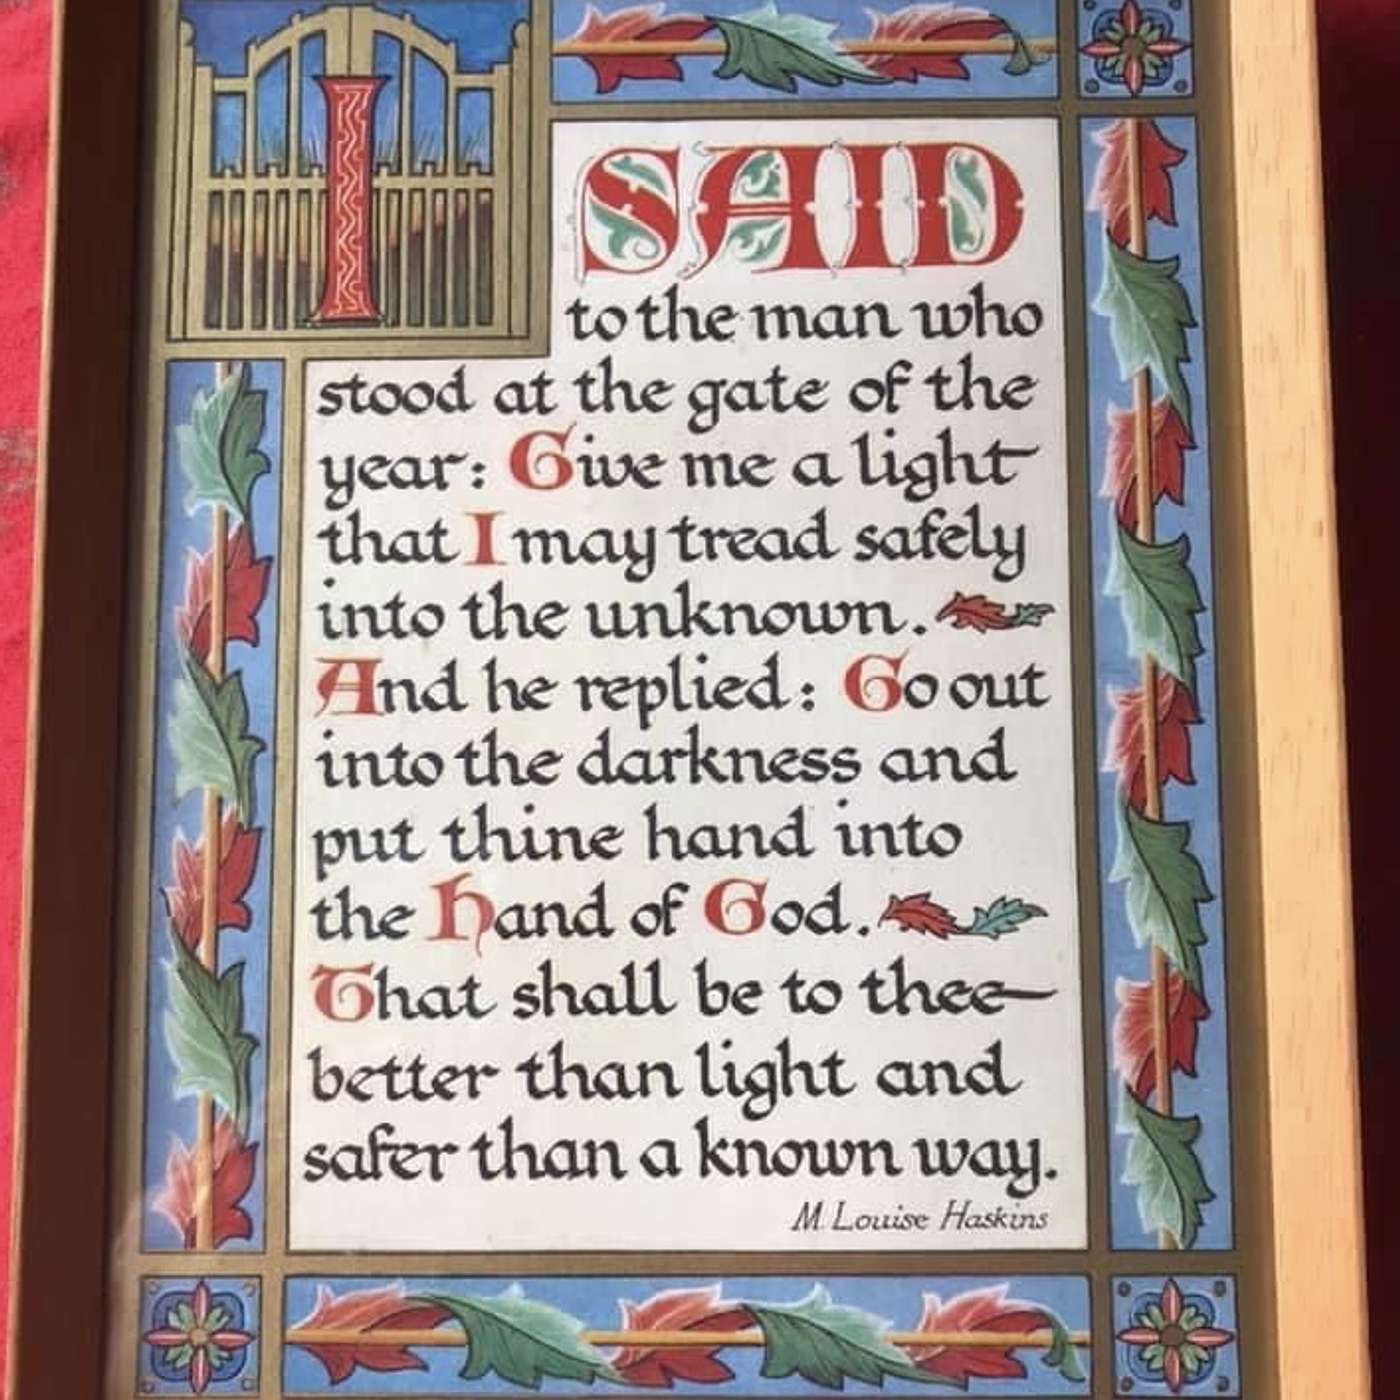 I SAID
to the man who
stood at the gate of the
year: Give me a light
that I may tread safely
into the unknown.
And he replied: Go out
into the darkness and
put thine hand into
the hand of God.
That shall be to thee
better than light and
safer than a known way.
M. Louise Haskins